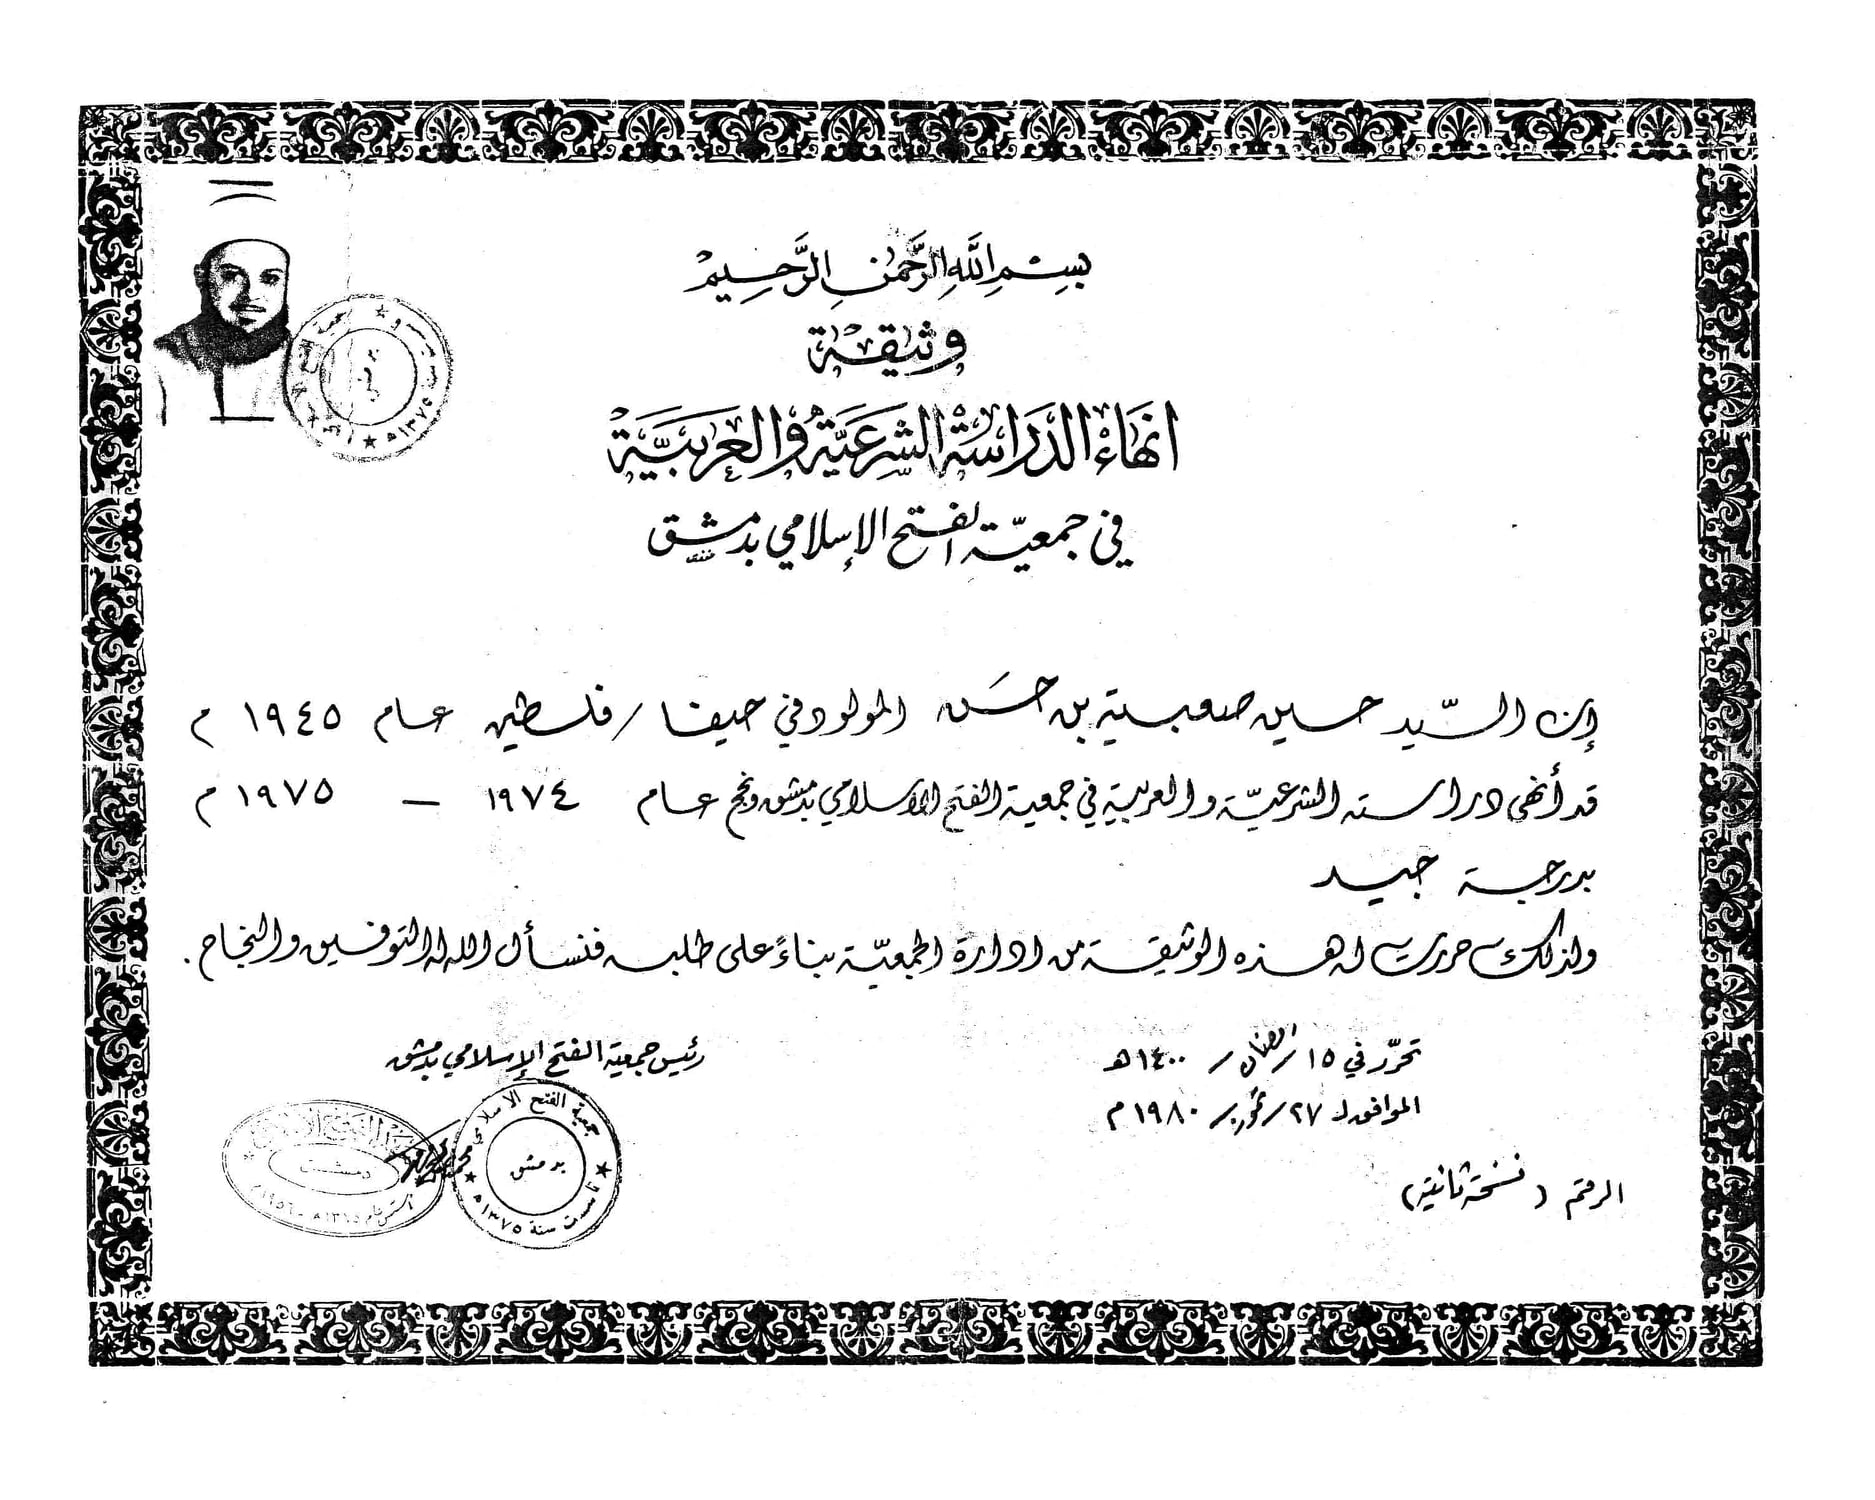 بسم الله الرحمن الرحيم
وثيقة
انهاء الدراسة الشرعية والعربية
في جمعية الفتح الإسلامي بدمشق
إن السيد حسين صعبية بن حسن المولود في حيفا / فلسطين عام ١٩٤٥ م
قد أنهى دراسته الشرعية والعربية في جمعية الفتح الاسلامي بدمشق ونجح عام ١٩٧٤ – ١٩٧٥ م
بدرجة جيد
ولذلك حررت له هذه الوثيقة من ادارة الجمعية بناءً على طلبه فنسأل الله له التوفيق والنجاح .
تحرّر في ١٥ / رمضان / ١٤٠٠ هـ
الموافق لـ ٢٧ / تموز / ١٩٨٠ م
الرقم ( نسخة ثانية )
رئيس جمعية الفتح الإسلامي بدمشق
جمعية الفتح الاسلامي
بدمشق
تأسست سنة ١٣٧٥ هـ
دمشق